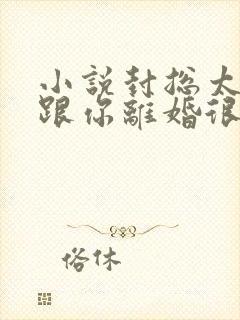 小說封总太
跟你離婚很
俗休